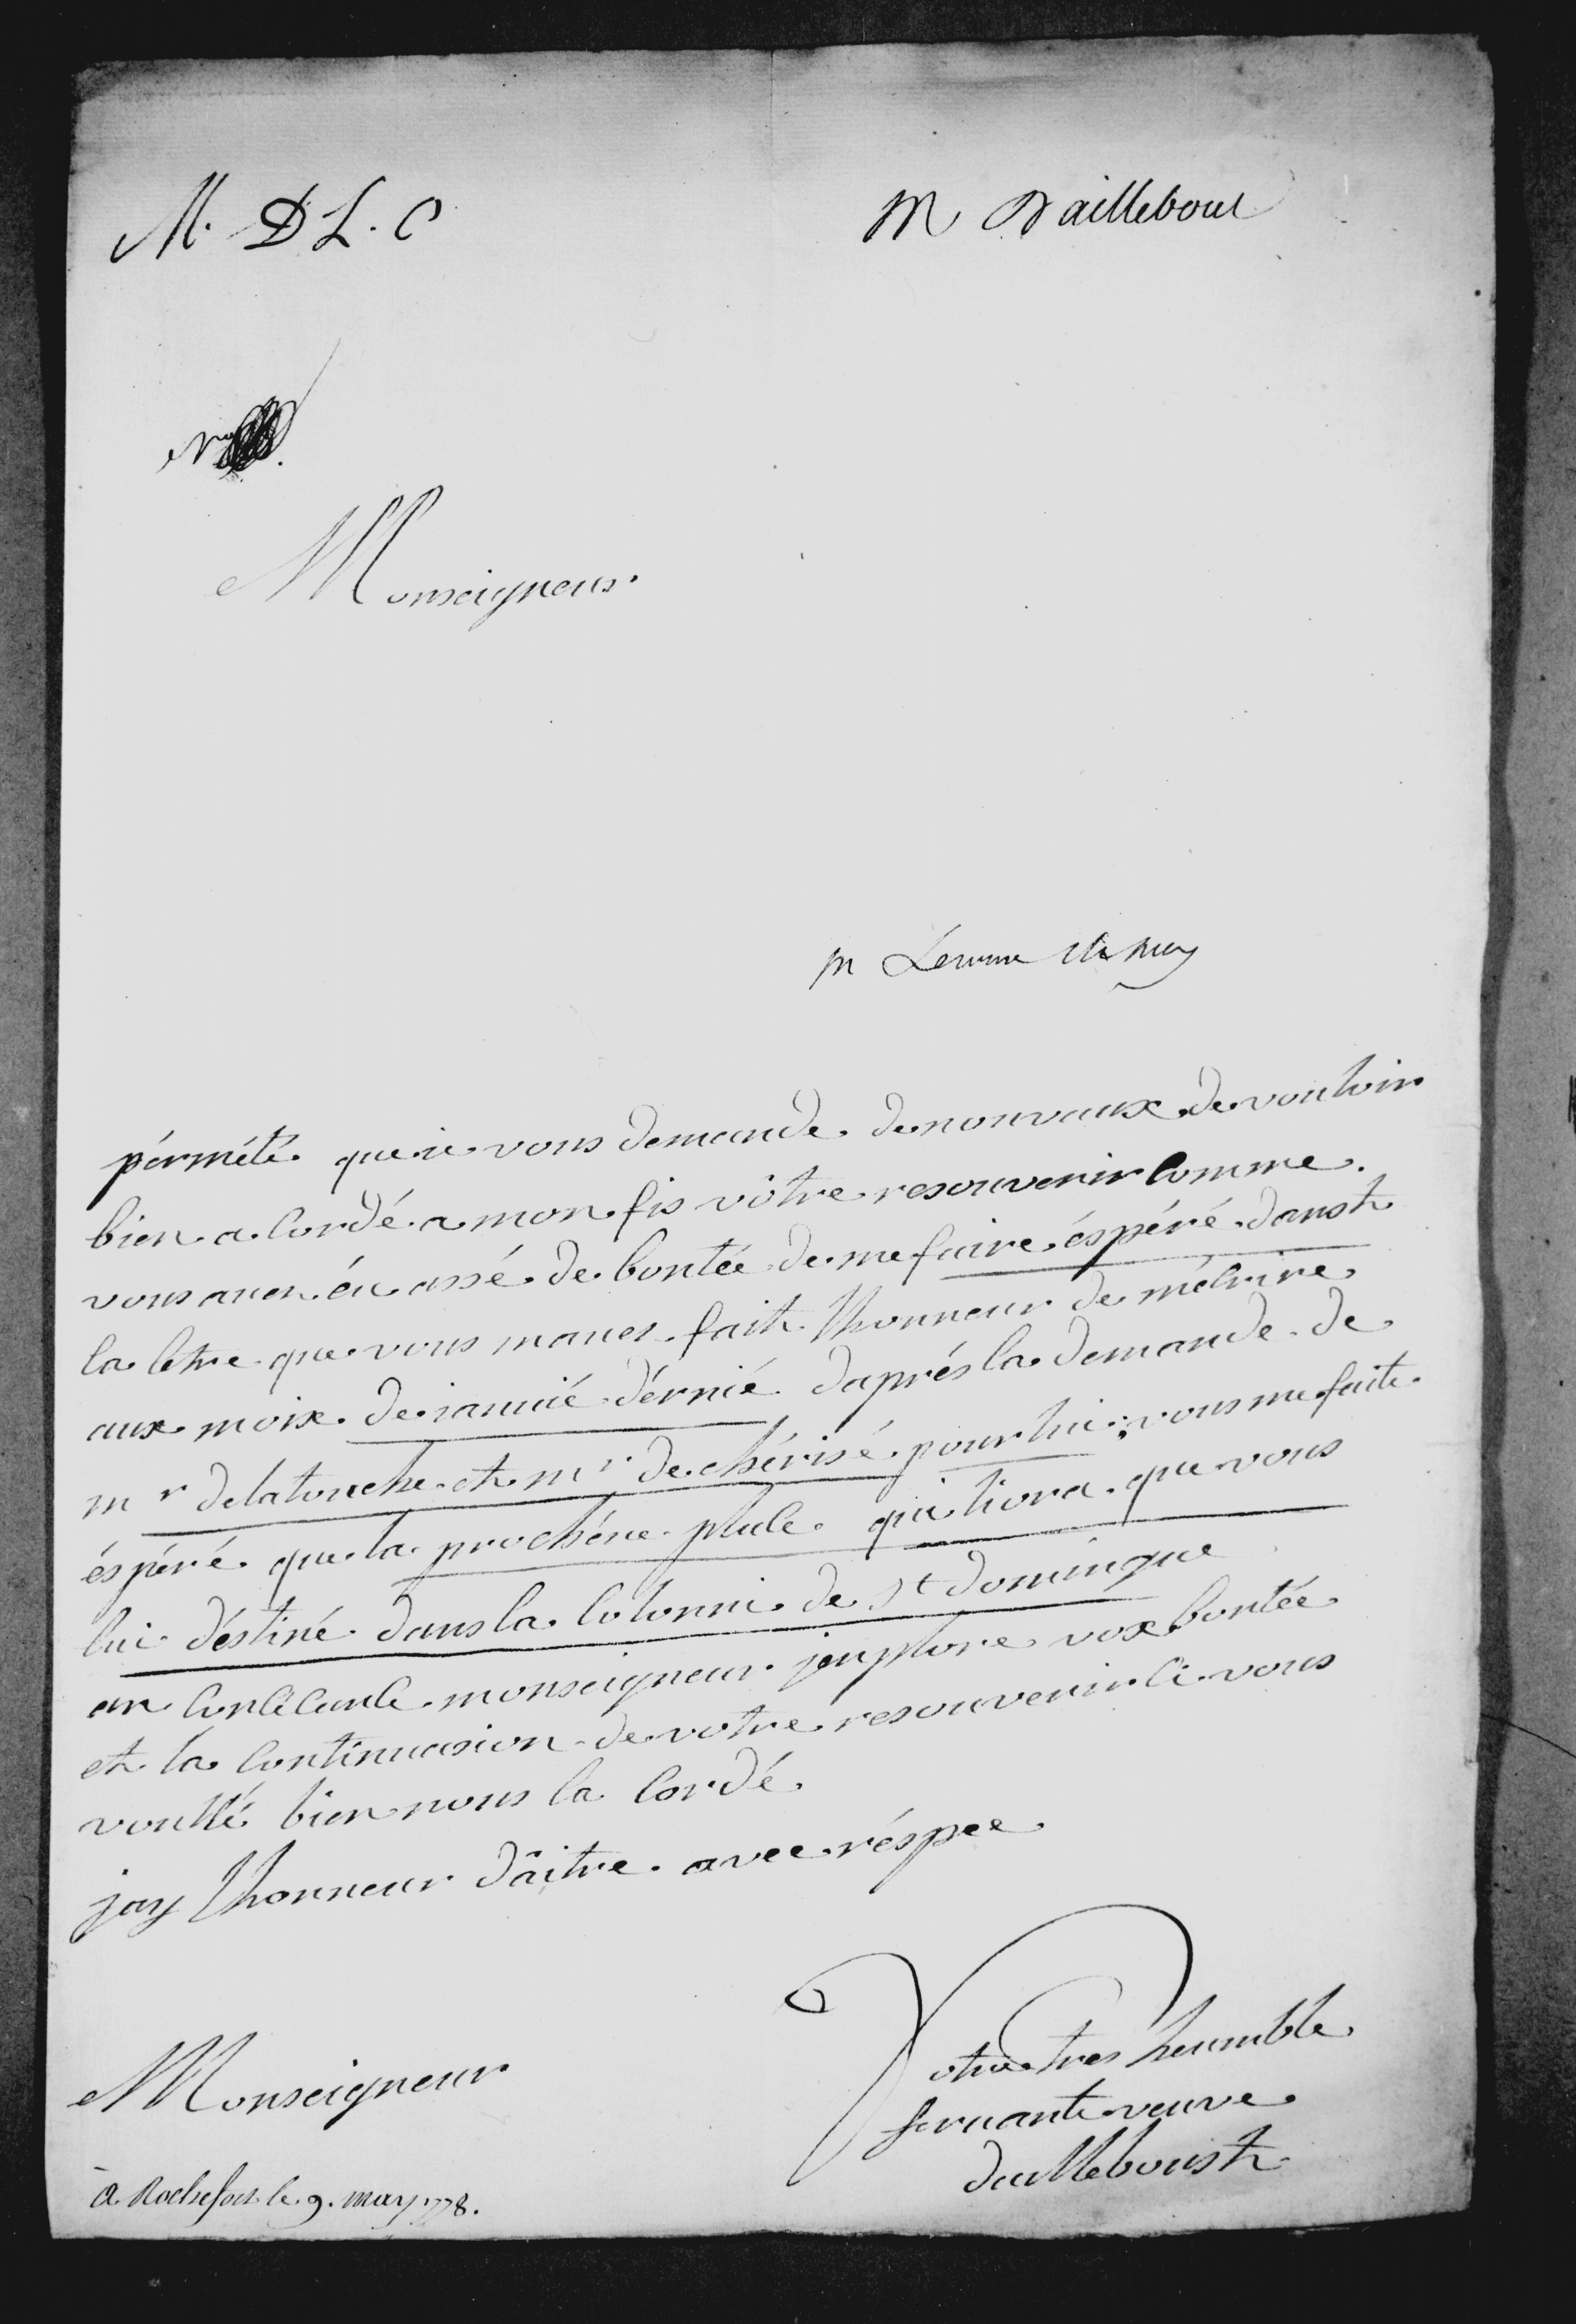 M. D L. C
M Daillebout
Monseigneur
M
pérmété que ie vous demande de nouvaux de vouloir
bien a Cordé a mon fis vôtre resouvenir Comme
vous aves éu assé de bontée de me faire éspéré danst
la letre que vous maves fait lhonneur de mécrire
aux moix de ianvié dérnié daprés la demande de
mr delatouche et mr de chérisé pour lui ; vous me faite
éspéré que la prochéne place qui liora que vous
lui déstiné dans la Colonni de st domingue
an Conséquance monseigneur jenplore vox bontée
et la Continuasion de votre resouvenir ci vous
voullé bien nous la Cordé
jay lhonneur dâitre avec réspec
Monseigneur
Votre tres heumble
servante veuve
dailleboust
à Rochefort le 9. may 1778.